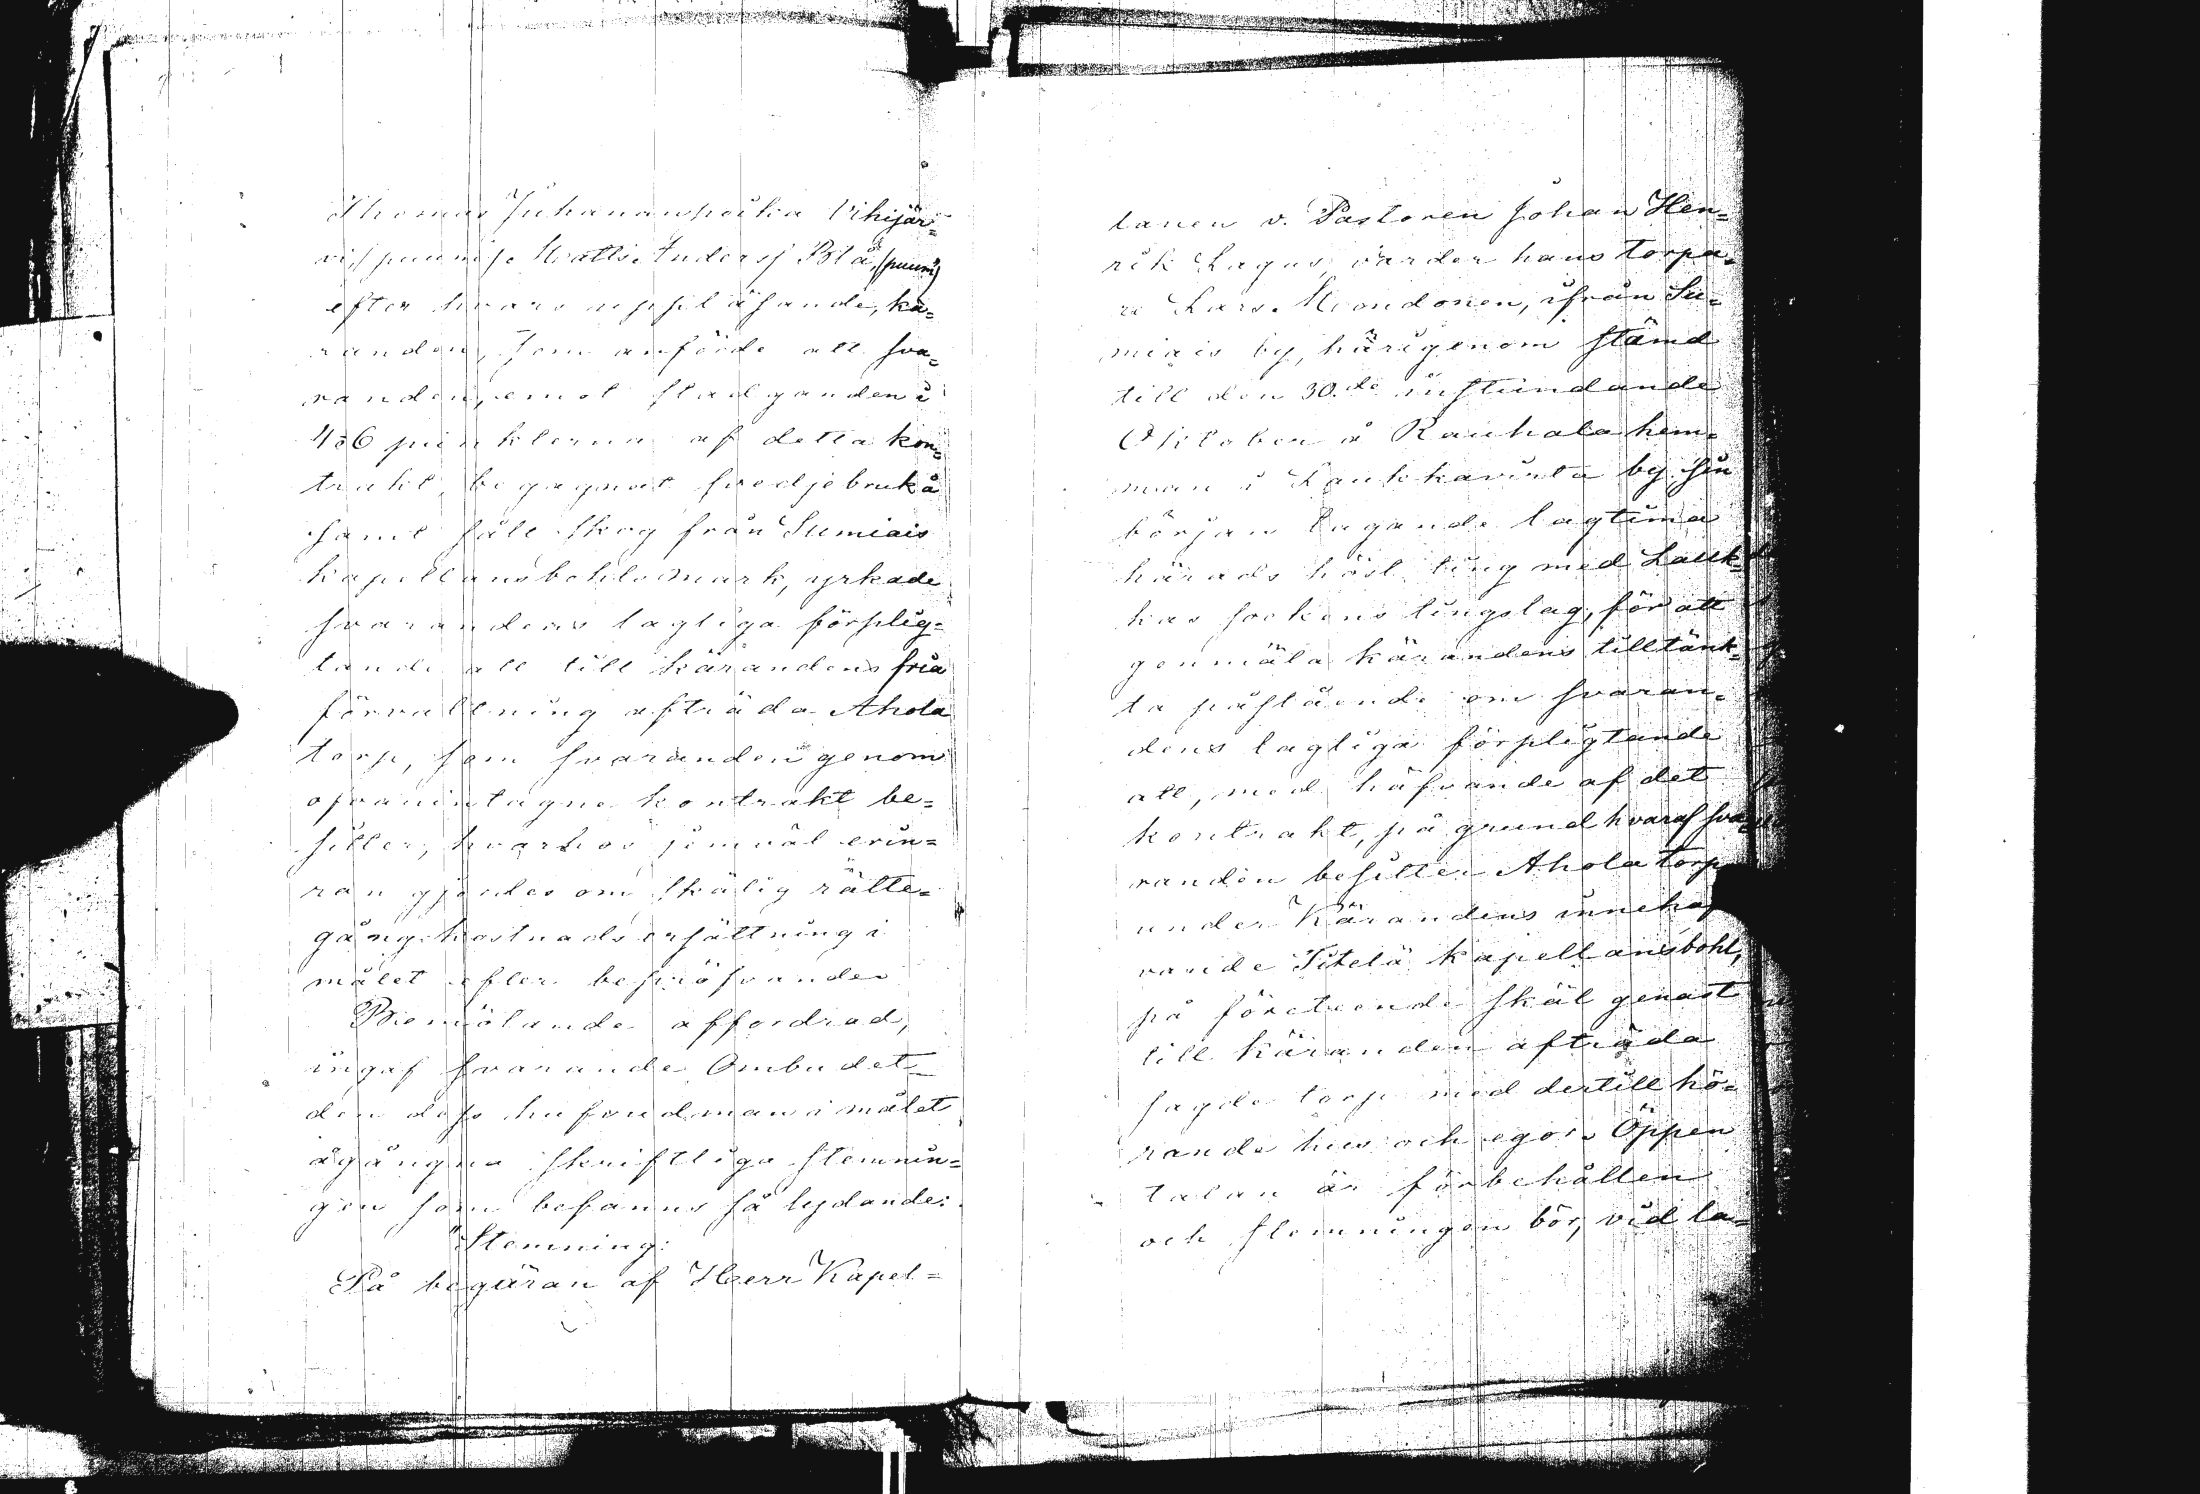 Thomas Juhananpoika Vihijär=
vi,/ puumj. Matts Anderss Blå, /puumj
efter hvars uppläsande, kä=
randen, som anförde att sva=
randen, emot stadganden i
4 o 6 punkterna af detta kon=
trakt, begagnat svedjebruk å
samt sålt skog från Sumiais
kapellansbohls mark, yrkade
svarandens lagliga förplig=
tande att till kärandens fria
förvaltning afträda Ahola
torp, som svaranden genom
ofvanintagne kontrakt be=
sitter, hvarhos jemväl erin=
ran gjordes om skälig rätte=
gångskostnads ersättning i
målet efter bepröfvande.
Bemälande affordrad,
ingaf svarande Ombudet
den dess hufvudman i målet
ågångna skriftliga stemnin=
gen som befanns så lydande:
"Stemning:
På begäran af Herr Kapel=
lanen v. Pastoren Johan Hen=
rik Lagus, varder hans torpa=
re Lars Moondonen, ifrån Su=
miais by, härigenom stämd
till den 30.de instundande
Oktober å Rauhala hem=
man i Laukkavirta by sin
början tagande lagtima
härads höst ting med Lauk=
kas sockens tingslag, för att
genmäla kärandens tilltänk=
ta påstående om svaran=
dens lagliga förpligtande
att, med häfvande af det
kontrakt, på grund hvaraf sva=
randen besitter Ahola torp
under Kärandens inneha
vande Titelä kapellansbohl,
på företeende skäl genast
till Käranden afträda
sagde torp med dertill hö=
rande hus och egor. Öppen
talan är förbehållen
och stemningen bör, vid la=